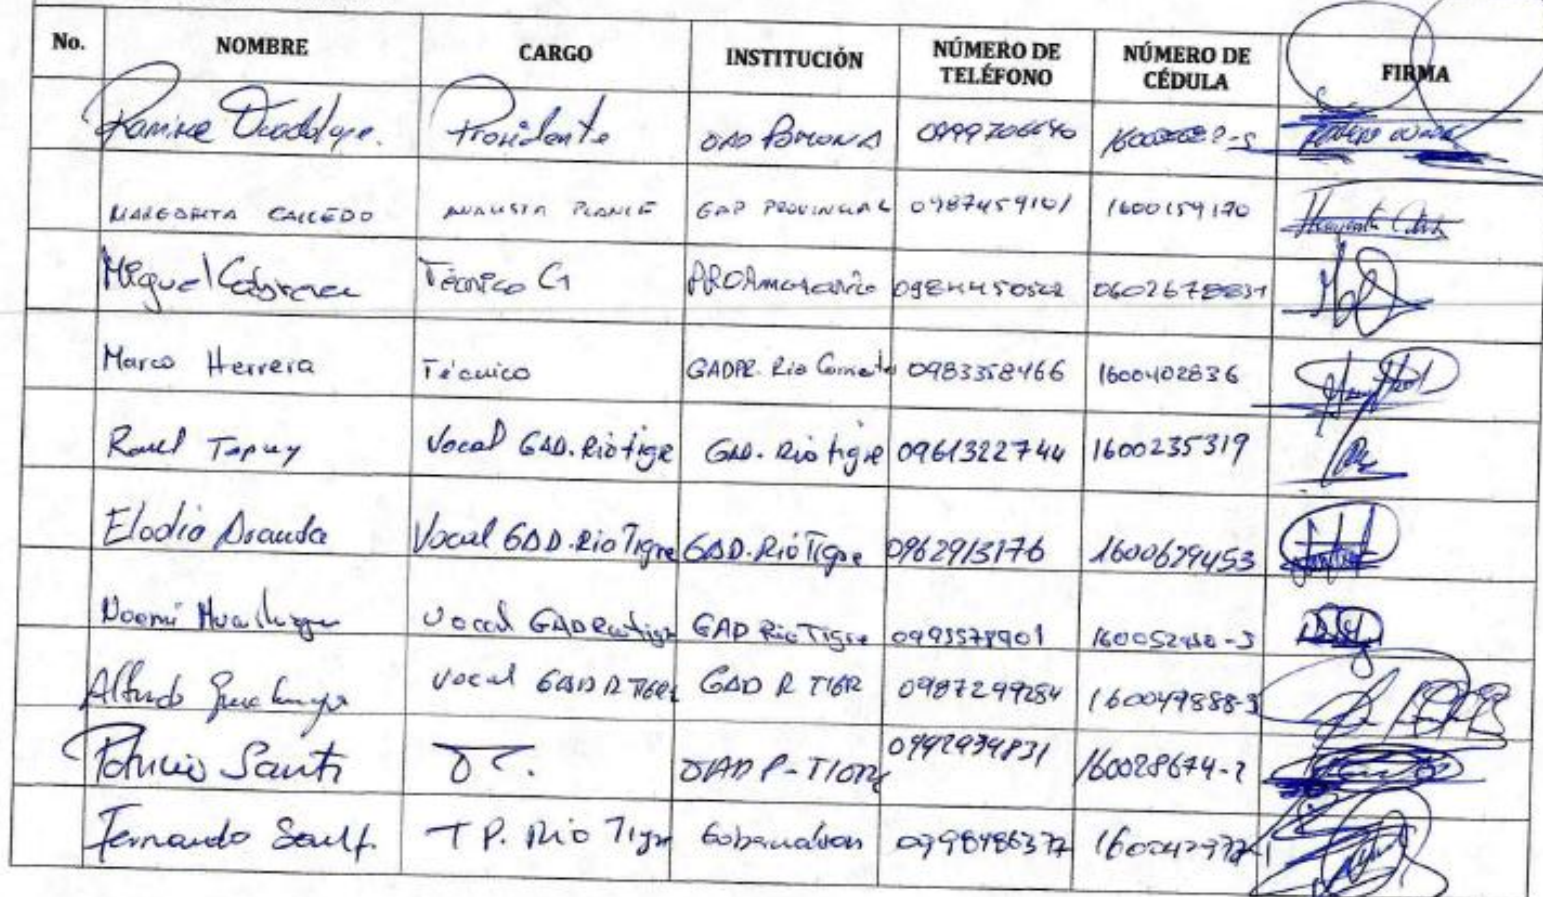 No. NOMBRE CARGO INSTITUCIÓN NÚMERO DE TELÉFONO NÚMERO DE CÉDULA FIRMA
Presidente GAD Pomona 0999706640
MARGARITA CAICEDO ANALISTA GAD PROVINCIAL 0987459101 1600159170
Miguel Cabrera Técnico PROAmazonía 0984450562
Marco Herrera Técnico GADPR. Rio Corrientes 0983358466 1600402836
Raul Tapuy Vocal GAD. Rio tigre GAD. Rio tigre 0961322744 1600235319
Elodia Aranda Vocal GAD. Rio Tigre GAD. Rio Tigre 0962913176 1600629453
Noemi Vocal GAD Rio tigre GAD Rio Tigre 0993578901
Alfredo Vocal GAD R TIGRE GAD R TIGR 0987299284 160049888-3
Patricio Santi GAD P-TIGRE 0992939831 160028674-2
Fernando Santi T P. Rio Tigre Gobernación 0998486372